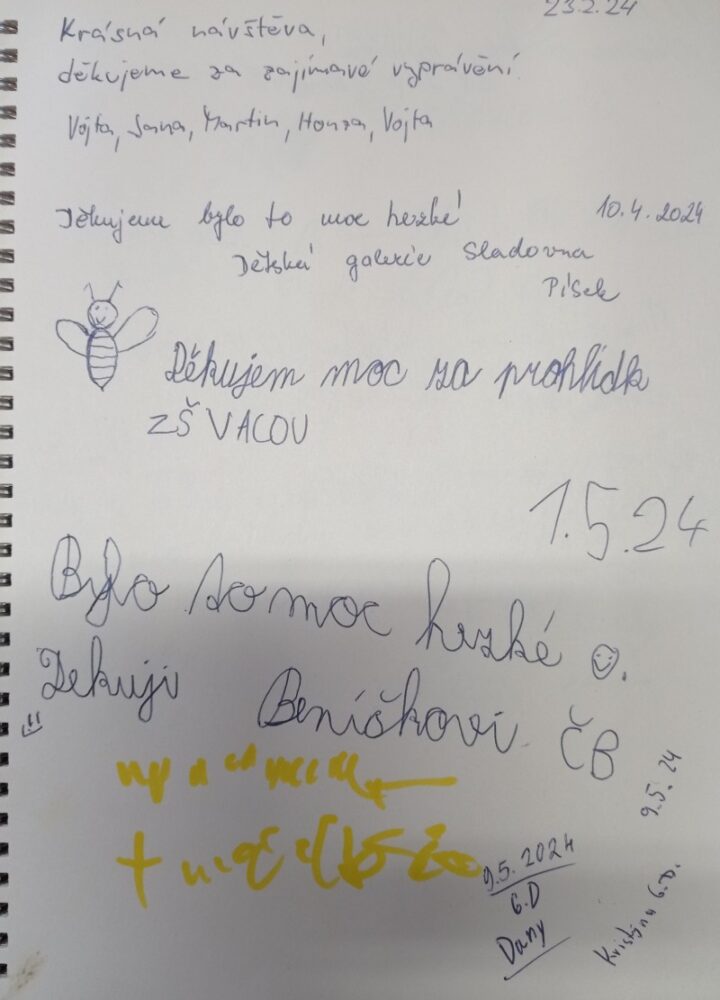 23.2.24
Krásná návštěva,
děkujeme za zajímavé vyprávění
Vojta, Jana, Martin, Honza, Vojta
Děkujeme bylo to moc hezké!
10.4.2024
Dětská galerie Sladovna
Písek
Děkujem moc za prohlídk
ZŠ VACOV
1.5.24
Bylo to moc hezké
Dekuji Beníškovi ČB
9.5.24
9.5.2024
6.D
Dany
Kristýna 6.D.